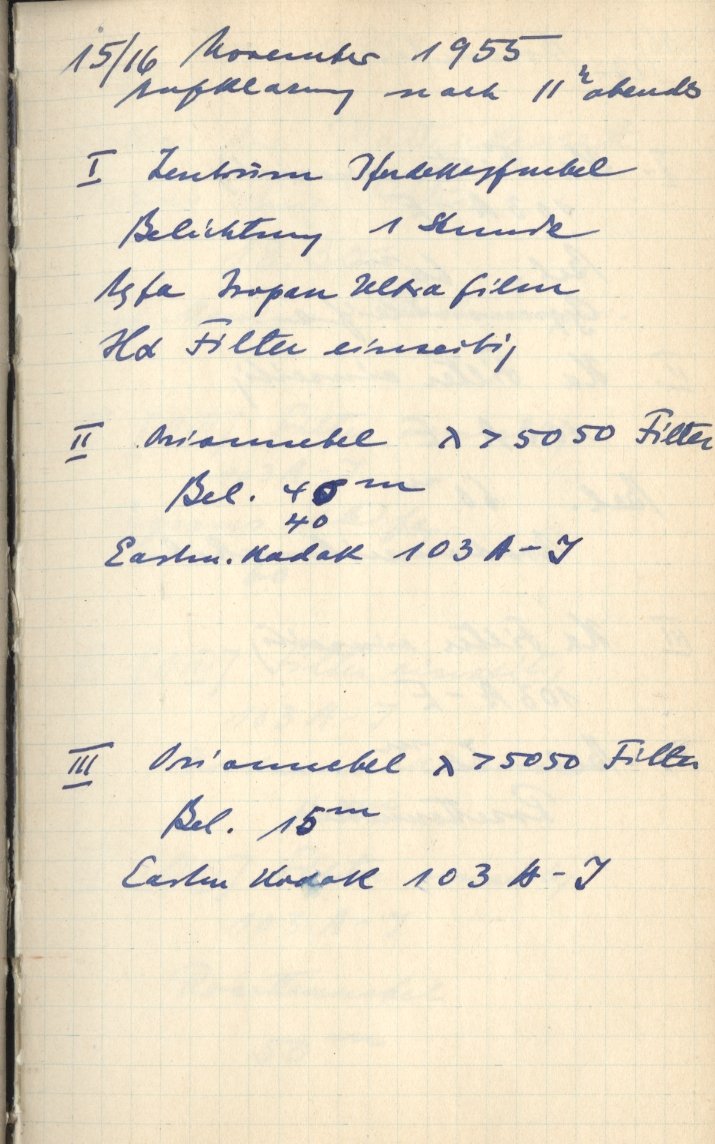 15/16 November 1955
Aufklarung nach 11h abends
I Zentrum Pferdekopfnebel
Belichtung 1 Stunde
Agfa Isopan Ultra film
Hα Filter einseitig
II Orionnebel λ > 5050 Filter
Bel. 45 m
40
Eastm. Kodak 103 A-J
III Orionnebel λ > 5050 Filter
Bel. 15 m
Eastm Kodak 103 A-J